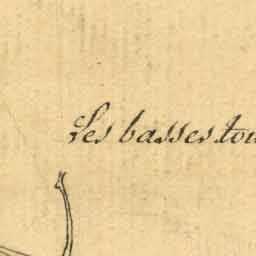 Les basses tou